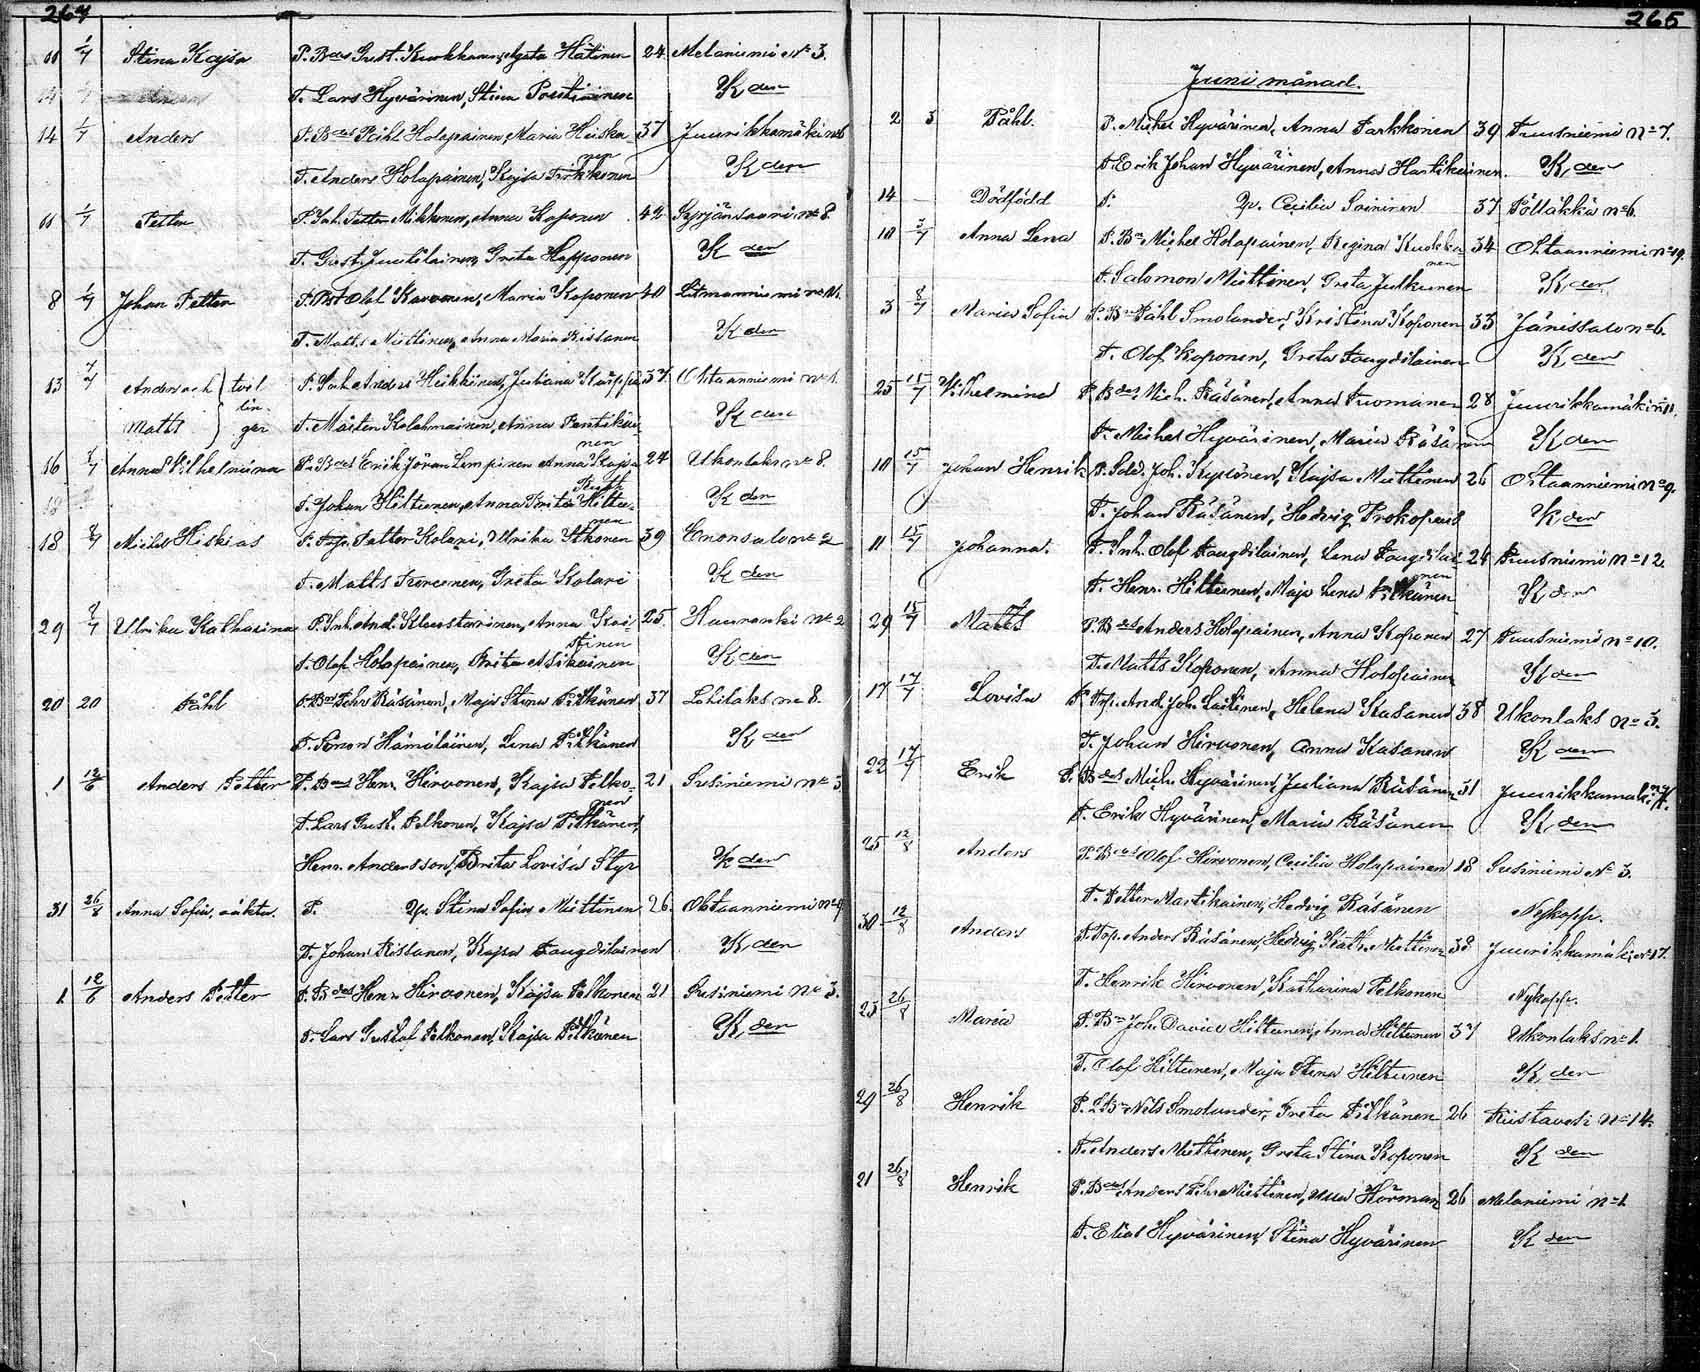 264
11 1/7 Stina Kajsa P. Bds Gust. Kuokkanen, Agata Hätinen 24 Melaniemi No 3.
T. Lars Hyvärinen, Stina Pentinen K den
14 1/7 Anders P. Bds Påhl Holopainen, Maria Heiska- 37 Juurikkamäki No 6
nen
T. Anders Holopainen, Kajsa Pirhkonen K den
11 1/7 Petter P. Inh. Petter Mikkonen, Anna Koponen 42 Syrjänsaari No 8
T. Gust. Juutilainen, Greta Happonen K den
8 1/7 Johan Petter P. Olof Karvonen, Maria Koponen 40 Litmaniemi No
T. Matts Miettinen, Anna Maria Rissanen K den
13 7/7 Anders och tvil P. Inh. Anders Heikkinen, Juliana Kauppi 37 Ohtaanniemi No 1.
lin-
Matts ger T. Mårten Kolehmainen, Anna Pentikäi- K den
nen
16 1/7 Anna Vilhelmina P. Bds Erik Jöran Limpinen Anna Kajsa 24 Ukonlaks No 8.
Rusk
T. Johan Hiltunen, Anna Brita Hiltu- K den
nen
18 2/7 Michel Hiskias P. Trp. Petter Kolari, Ulrika Itkonen 39 Enonsalo No 2
T. Matts Turunen, Greta Kolari K den
29 2/7 Ulrika Katharina P. Inh. And. Klaustarinen, Anna Kai- 25. Kauranki No 2
T. Olof Holopainen, Brita Asikainen K den
20 20 Påhl P. Bds Pehr Räsänen, Maja Stina Pitkänen 37 Lohilaks No 8.
T. Simon Hämäläinen, Lena Pitkänen K den
1 12/6 Anders Petter P. Bds Henr. Hirvonen, Kajsa Pelko- 21 Susiniemi No 3
nen
T. Lars Gust. Pelkonen, Kajsa Pitkänen,
Henr. Andersson, Brita Lovisa Styr K den
31 26/8 Anna Sofia, oäkta. P. Qp. Stina Sofia Miettinen 26. Ohtaanniemi No 9
T. Johan Rissanen, Kajsa Taugdilainen K den
1 12/6 Anders Petter P. Bds Henr Hirvonen, Kajsa Pelkonen 21 Susiniemi No 3.
T. Lars Gustaf Pelkonen, Kajsa Pitkänen K den
265
Juni månad.
2 3 Påhl. P. Michel Hyvärinen, Anna Parkkonen 39 Tuusniemi No 7.
T. Erik Johan Hyvärinen, Anna Hartikainen. K den
14 — Dödfödd P. Qp. Cecilia Soininen 37 Pölläkkä No 6.
10 3/7 Anna Lena P. Bn Michel Holopainen, Regina Kuokka- 34 Ohtaanniemi No 19.
nen
T. Salomon Miettinen, Greta Julkunen K den
3 8/7 Maria Sofia P. Bn Påhl Smolander, Kristina Koponen 33 Jänissalo No 6.
T. Olof Koponen, Greta Taugdilainen K den
25 15/7 Vilhelmina P. Bds Mich. Räsänen, Anna Tuomainen 28 Juurikkamäki No 11.
T. Michel Hyvärinen, Maria Räsänen K den
10 15/7 Johan Henrik P. Sold. Joh. Kyrönen, Kajsa Miettinen 26 Ohtaanniemi No 9.
T. Johan Räsänen, Hedvig Prokopeus K den
11 15/7 Johanna. P. Inh. Olof Taugdilainen, Lena Taugdilai- 24 Tuusniemi No 12.
nen
T. Henr. Hiltunen, Maja Lena Pitkänen K den
29 15/7 Matts P. Bds Anders Holopainen, Anna Koponen 27 Tuusniemi No 10.
T. Matts Koponen, Anna Holopainen K den
17 17/7 Lovisa P. Trp. And. Joh. Laitinen, Helena Kasanen 38 Ukonlaks No 3.
T. Johan Hirvonen, Anna Kasanen K den
22 17/7 Erik P. Bds Mich. Hyvärinen, Juliana Räsänen 31 Juurikkamäki
T. Erik Hyvärinen, Maria Räsänen K den
25 12/8 Anders P. Bds Olof Hirvonen, Cecilia Holopainen 18 Susiniemi No 3.
T. Petter Martikainen, Hedvig Räsänen Nykopp.
30 12/8 Anders P. Trp. Anders Räsänen, Hedvig Kath. Miettinen 38 Juurikkamäki No 17.
T. Henrik Hirvonen, Katharina Pelkonen Nykopp.
23 26/8 Maria P. Bn Joh. David Hiltunen, Anna Hiltunen 37 Ukonlaks No 1.
T. Olof Hiltunen, Maja Stina Hiltunen K den
29 26/8 Henrik P. LBn Nils Smolander, Greta Pitkänen 26 Riistavesi No 14.
T. Anders Miettinen, Greta Stina Koponen K den
21 26/8 Henrik P. Bds Anders Pehr Miettinen, Ulla Hörman 26 Melaniemi No 1.
T. Elias Hyvärinen, Stina Hyvärinen K den